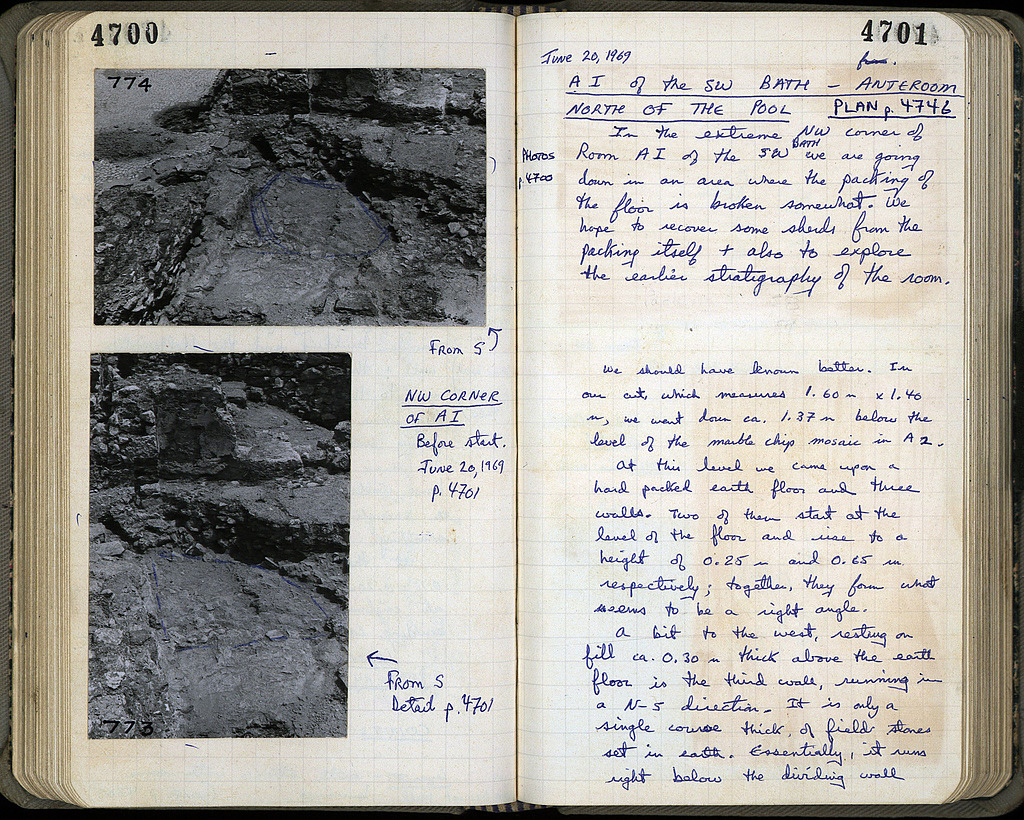 4700
774
From S
NW CORNER
OF A I
Before start.
June 20, 1969
p. 4701
From S
Detail p. 4701
773
4701
June 20, 1969
A I of the SW BATH – ANTEROOM
NORTH OF THE POOL PLAN p. 4746
PHOTOS
p. 4700
In the extreme NW corner of
Room A I of the SW BATH we are going
down in an area where the packing of
the floor is broken somewhat. We
hope to recover some sherds from the
packing itself + also to explore
the earlier stratigraphy of the room.
We should have known better. In
our cut, which measures 1.60 m x 1.40
m, we went down ca. 1.37 m below the
level of the marble chip mosaic in A 2.
At this level we came upon a
hard packed earth floor and three
walls. Two of them start at the
level of the floor and rise to a
height of 0.25 m and 0.65 m.
respectively; together, they form what
seems to be a right angle.
A bit to the west, resting on
fill ca. 0.30 m thick above the earth
floor is the third wall, running in
a N-S direction. It is only a
single course thick, of field stones
set in earth. Essentially, it runs
right below the dividing wall